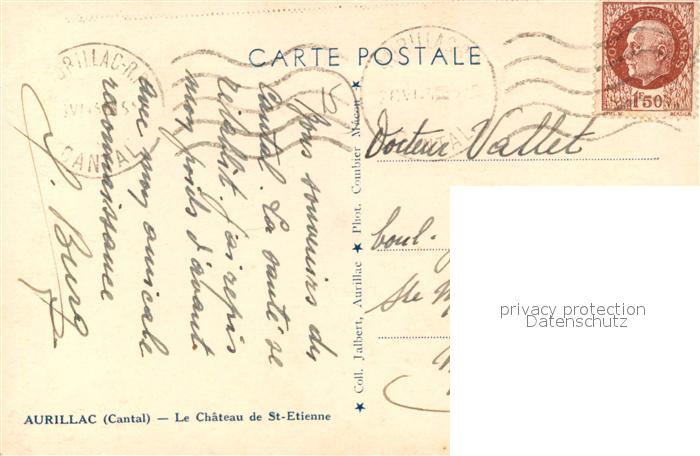 CARTE POSTALE
AURILLAC-R.P.
CANTAL
POSTES FRANÇAISES
1F50
15
Bons souvenirs du
Cantal. La santé se
rétablit. J'ai repris
mon poids d'avant.
Avec mon amicale
reconnaissance
Docteur Vallet
boul.
Ste M
Coll. Jalbert, Aurillac ★ Phot. Combier Mâcon ★
AURILLAC (Cantal) — Le Château de St-Etienne
privacy protection
Datenschutz